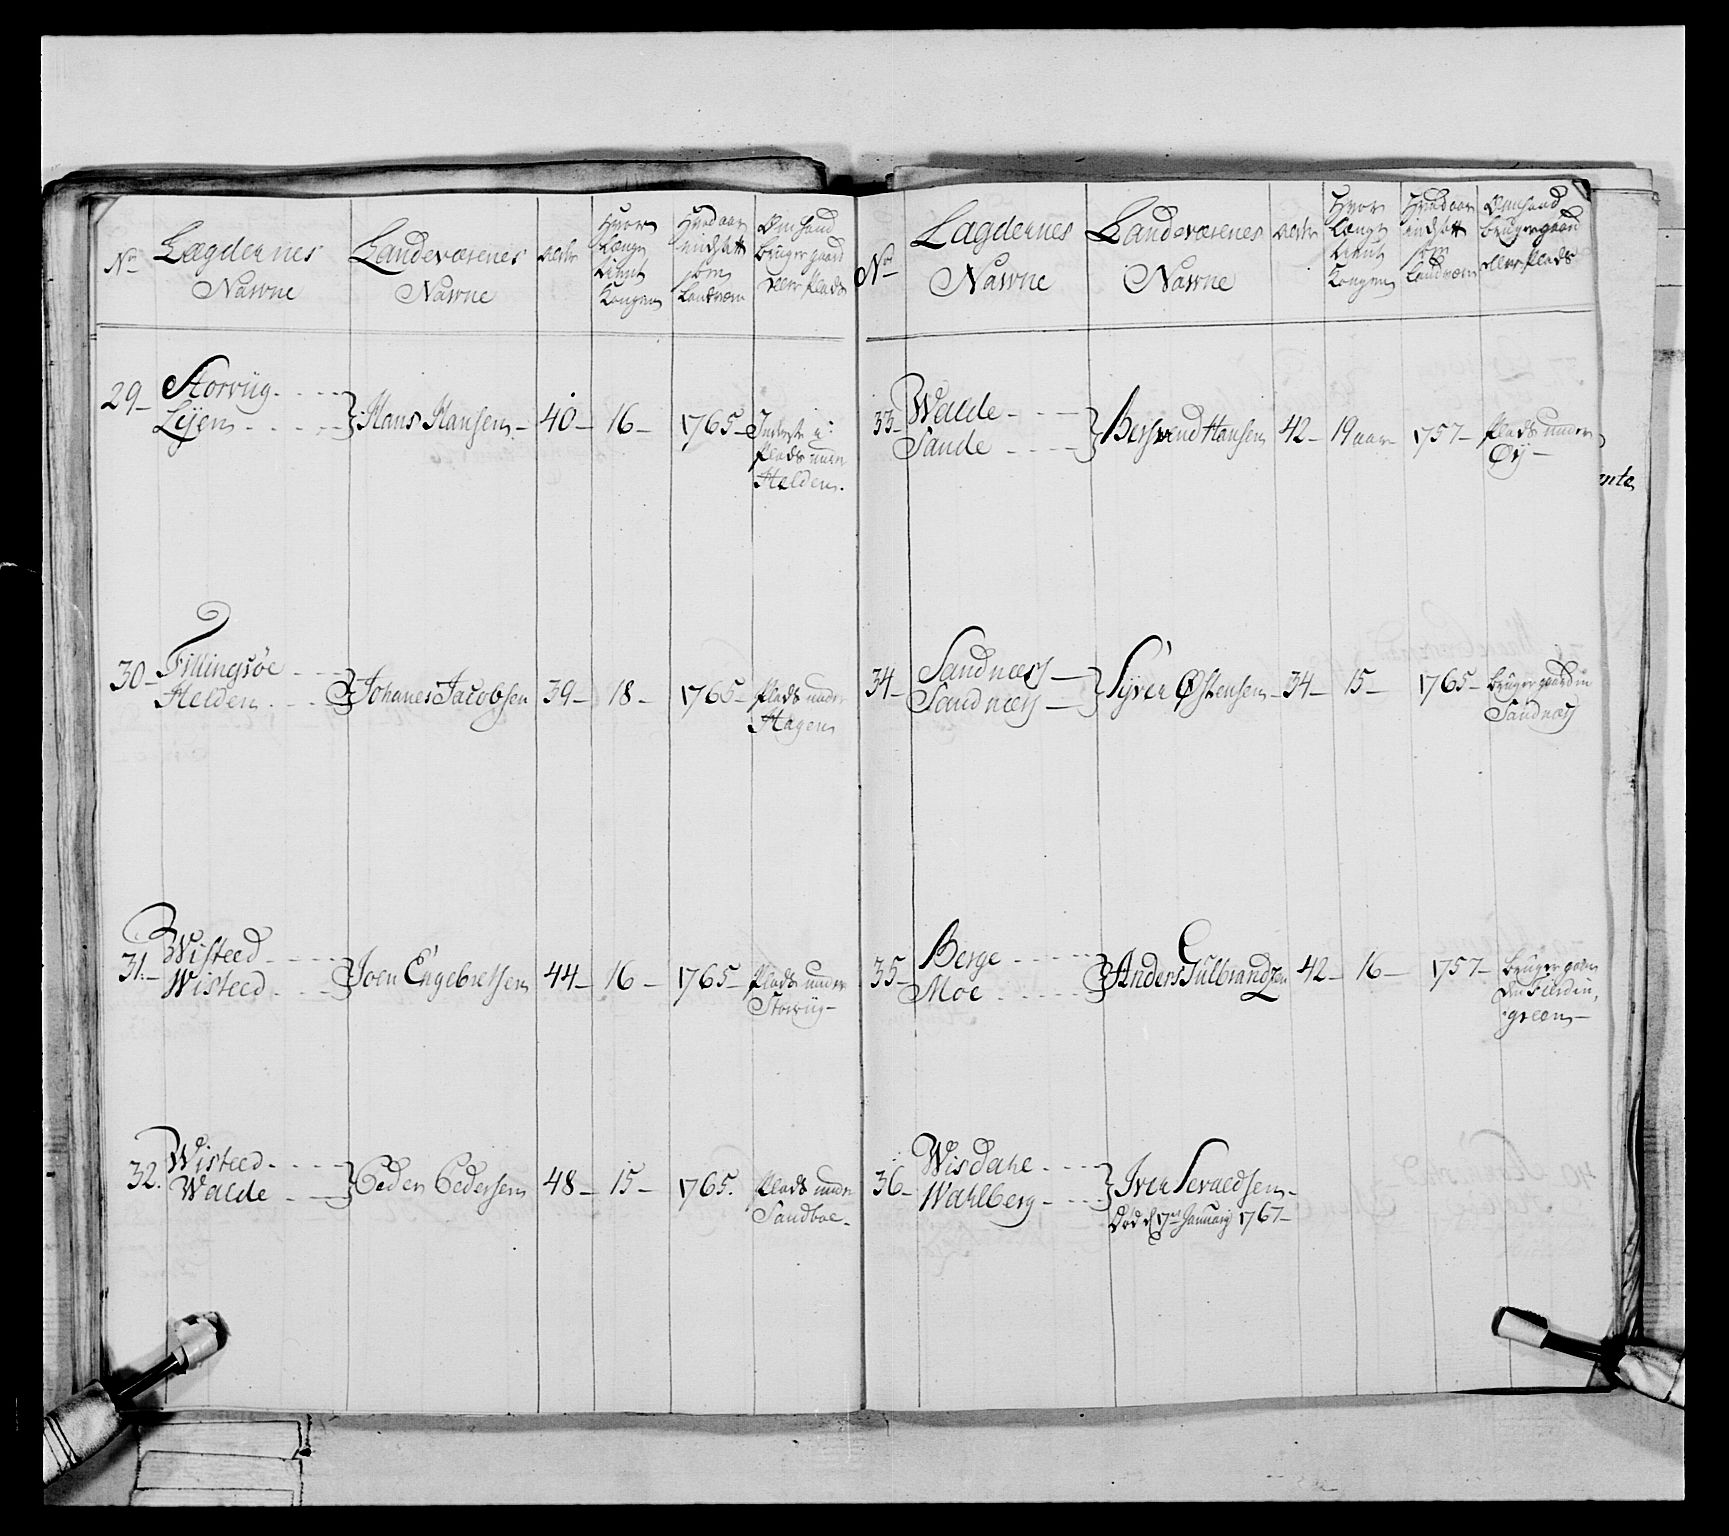 No Lægdernes Nawne
Landeværenes Nawne
Alder
Hvor Længe tient Kongen
Hvad aar indsatt som Landværn
Om hand bruger gaard eller Plads
29- Storviig
Lÿen
Hans Hansen - 40 - 16 - 1765 - Inderst i
Plads under
Helden.
30- Fillingsöe
Helden
Johanes Jacobsen 39 - 18 - 1765 - Plads under
Hagen
31- Wisteed
Wisteed
Joen Engebretsen 44 - 16 - 1765 - Plads under
Storviig -
32. Wisteed
Walde
Peder Pedersen 48 - 15 - 1765. Plads under
Sandboe -
No Lægdernes Nawne
Landeværenes Nawne
Alder
Hvor Længe tient Kongen
Hvad aar indsatt som Landværn
Om hand bruger gaard eller Plads
33- Walde
Sande
Bersvend Hansen 42 - 19 aar 1757 - Plads under
Øÿ -
34- Sandnæss
Sandnæss
Syver Østensen - 34 - 15 - 1765 - bruger gaard in
Sandnæss
35- Berge
Moe
Anders Gulbrandzen 42 - 16 - 1757 - bruger gaarden
green -
36- Wisdahl
Wahlberg
Iver Sevaldsen -
Död d 17de January 1767 -